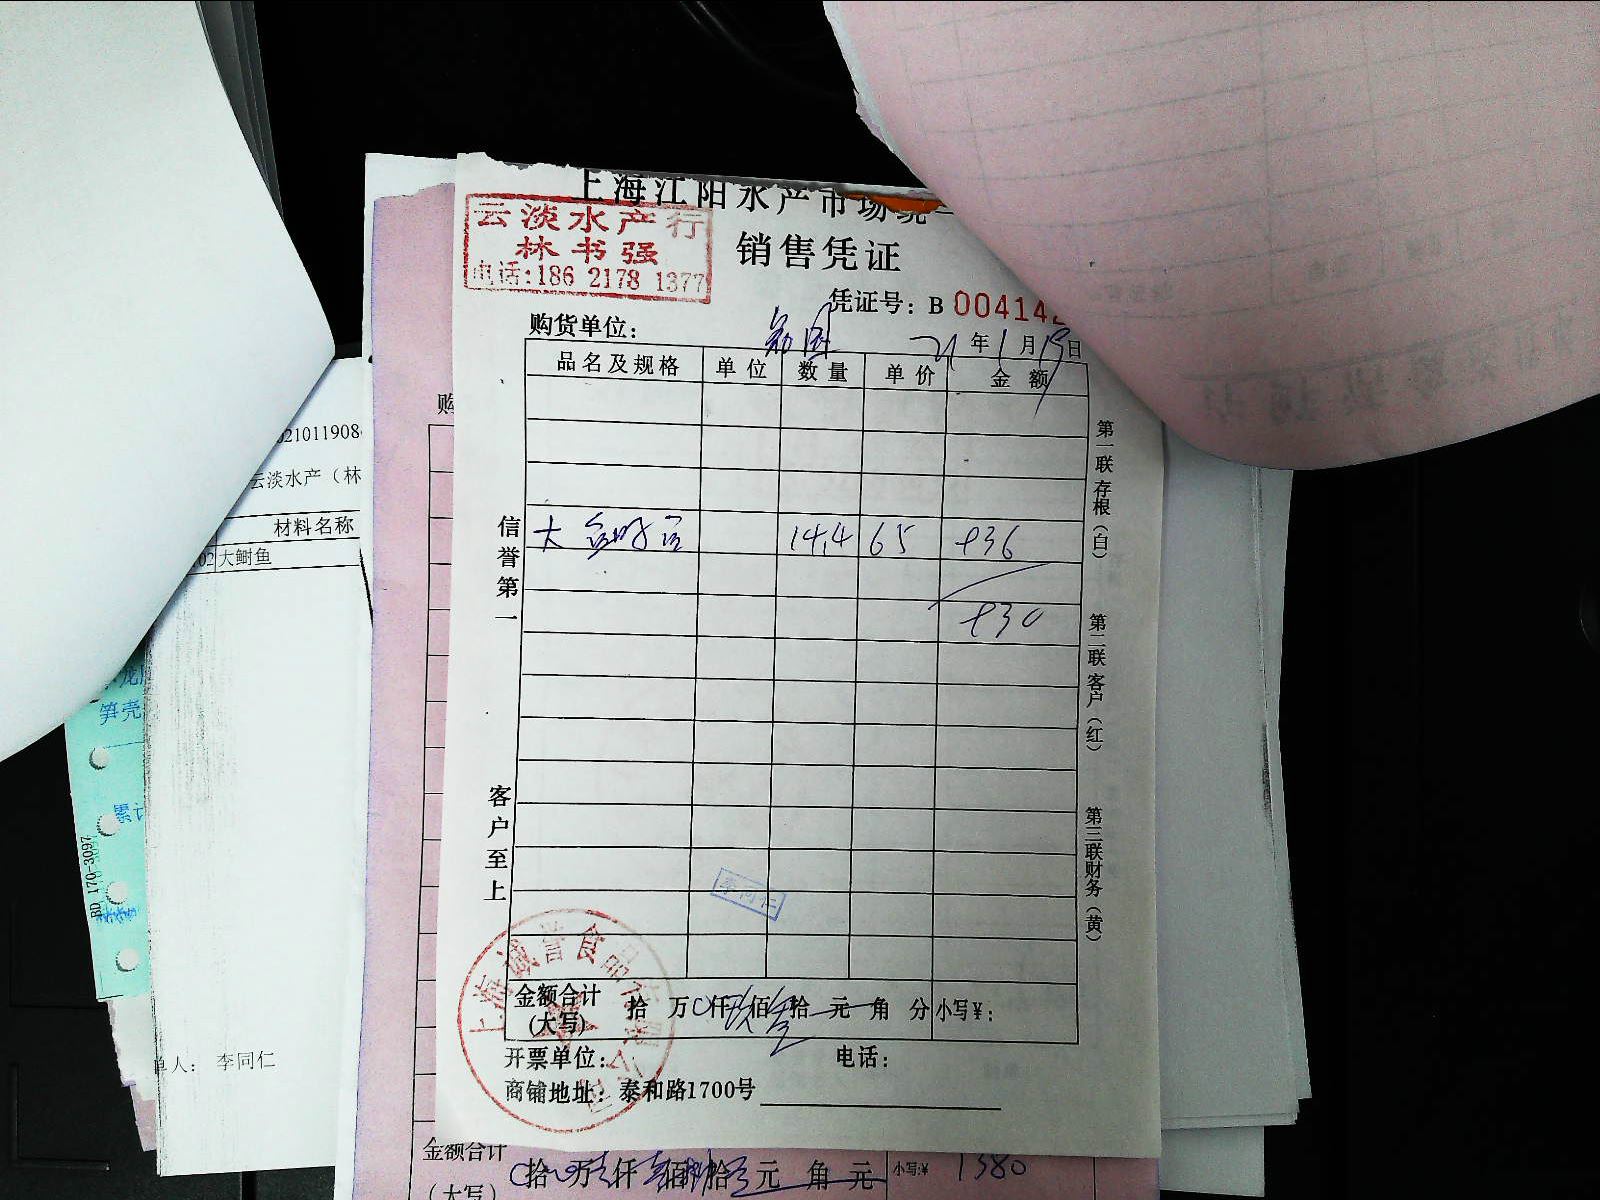 上海江阳水产市场统一
云淡水产行
林书强
电话:186 2178 1377
销售凭证
凭证号: B 00414
购货单位:
21 年 1 月 19 日
品名及规格 单位 数量 单价 金额
大 14.4 65 936
930
信誉第一
客户至上
第一联存根(白)
第二联客户(红)
第三联财务(黄)
李同仁
上海诚誉食品有限公司
金额合计 拾 万 仟 玖 佰 叁 拾 元 角 分 小写¥:
(大写)
开票单位: 电话:
商铺地址: 泰和路1700号
购
021011908
云淡水产(林
材料名称
02 大鲥鱼
单人: 李同仁
笋壳
累计
BD 170-3097
金额合计 拾 万 仟 佰 拾 元 角 元 小写:¥ 1380
(大写)